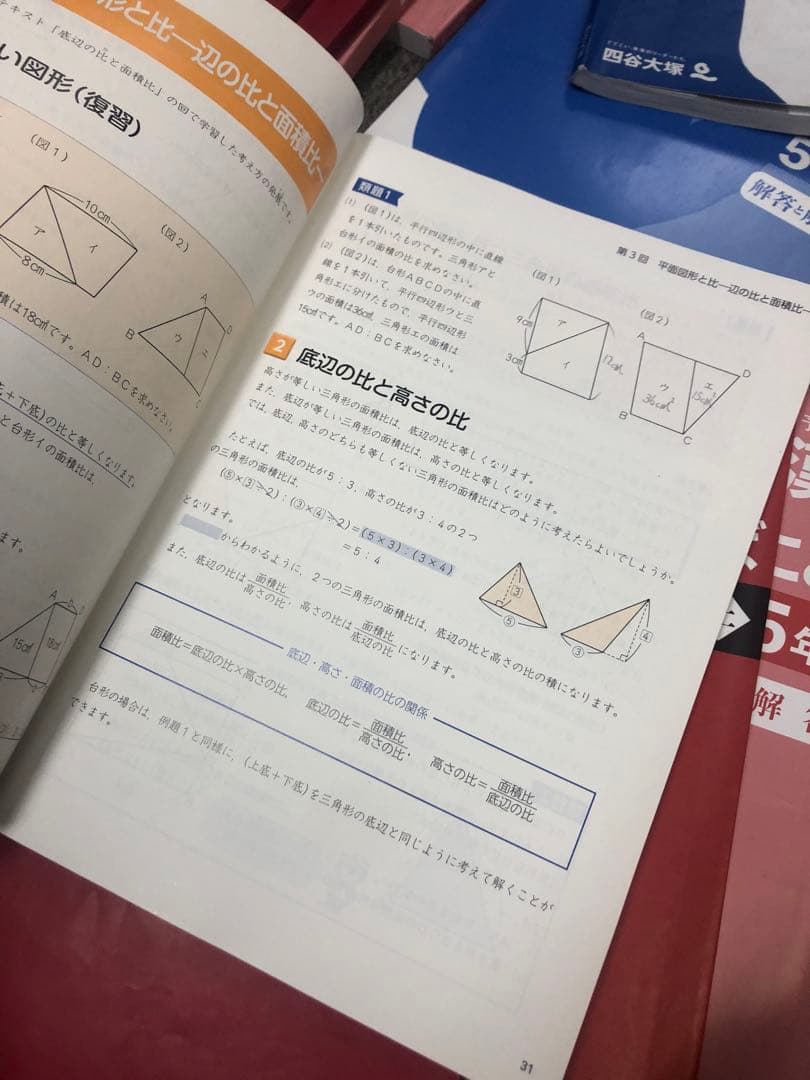 形と比―辺の比と面積比―
テキスト「底辺の比と面積比」の図で学習した考え方の発展です。
い図形(復習)
(図1)
10cm
ア
イ
8cm
(図2)
A
D
B
ウ
エ
C
積は18cm²です。AD:BCを求めなさい。
上底+下底)の比と等しくなります。
と台形イの面積比は、
ます。
A
15cm²
18cm²
四谷大塚
5
第3回 平面図形と比―辺の比と面積比―
類題1
(1) (図1)は、平行四辺形の中に直線
を1本引いたものです。三角形アと
台形イの面積の比を求めなさい。
(2) (図2)は、台形ABCDの中に直
線を1本引いて、平行四辺形ウと三
角形エに分けたもので、平行四辺形
ウの面積は36cm²、三角形エの面積は
15cm²です。AD:BCを求めなさい。
(図1)
9cm
3cm
ア
イ
12cm
(図2)
A
D
B
C
ウ
36cm²
エ
15cm²
2 底辺の比と高さの比
高さが等しい三角形の面積比は、底辺の比と等しくなります。
また、底辺が等しい三角形の面積比は、高さの比と等しくなります。
では、底辺、高さのどちらも等しくない三角形の面積比はどのように考えたらよいでしょうか。
たとえば、底辺の比が5:3、高さの比が3:4の2つ
の三角形の面積比は、
(⑤×③÷2):(③×④÷2)=(5×3):(3×4)
=5:4
となります。
③
⑤
④
③
からわかるように、2つの三角形の面積比は、底辺の比と高さの比の積になります。
また、底辺の比は面積比/高さの比、高さの比は面積比/底辺の比になります。
底辺・高さ・面積の比の関係
面積比=底辺の比×高さの比、 底辺の比=面積比/高さの比、 高さの比=面積比/底辺の比
台形の場合は、例題1と同様に、(上底+下底)を三角形の底辺と同じように考えて解くことが
できます。
31
5年
解答